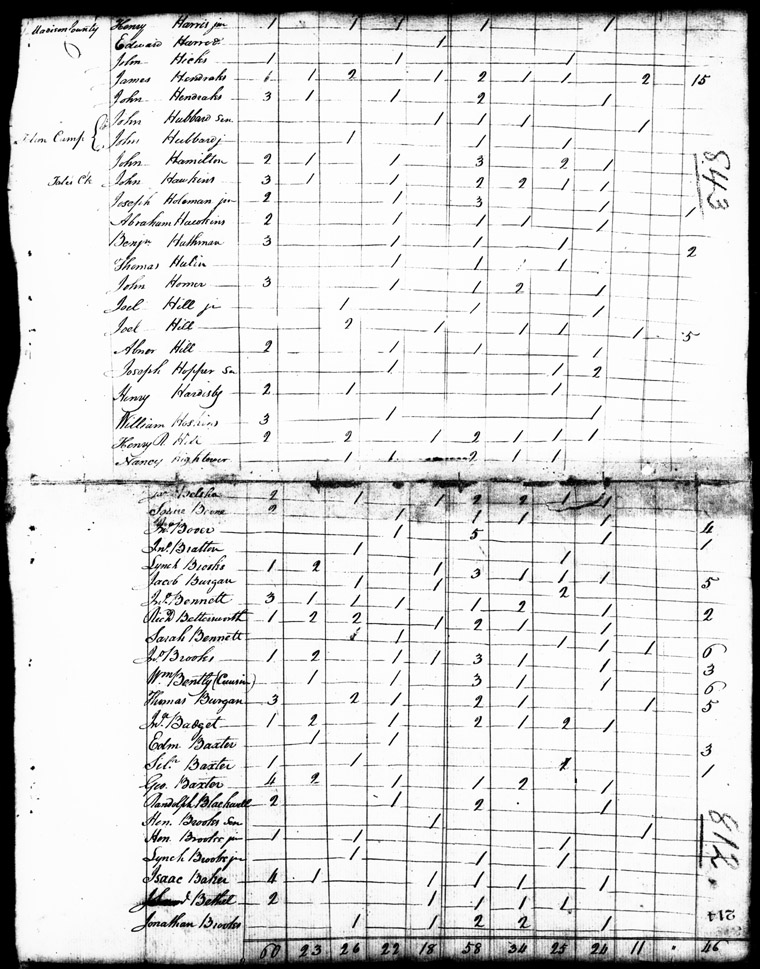 Madison County Henry Harris jnr 1 1 1 1 1
Edward 1
John Hicks 1 1 1
James Hendraks 1 2 1 2 1 1 2 15
John Hendraks 3 1 1 2 1
John Hubbard Sen 1 1 1 1
John Hubbard j 1 1 1
John Hamilton 2 1 1 3 2 1
John Hawkins 3 1 1 2 2 1 1
843
Joseph Holeman jnr 2 1 3 1
Abraham Hawkins 2 1 1 1 1 1
Benjn Huthman 3 1 1 1 2
Thomas Hulin 1 1 1
John Homer 3 1 1 2 1
Joel Hill jr 1 1 1
Joel Hill 2 1 1 1 1 5
Abner Hill 2 1 1 1
Joseph Hopper Sn 1 1 2
Henry Hardisty 2 1 1
William Hoskins 3 1 1
Henry R. Hill 2 2 1 2 1 1 1
Nancy Hightower 1 1 2 1 1
Belsha 2 1 1 2 2 1 1
Boone 2 1 1 1 1
Jno Boon 1 5 1 4
Jno Bratton 1 1 1
Lynch Brooks 1 2 1 3 1 1 1
Jacob Burgan 1 1 2 5
Jno Bennett 3 1 1 1 1 2 1
Richd Bettersworth 1 2 2 1 2 1 1 2
Sarah Bennett 1 1 1 1
Jno Brooks 1 2 1 1 3 1 1 6
Wm Bently (Cuusin) 1 1 3 1 1 3
Thomas Burgan 3 2 1 2 1 1 6
Jno Badget 1 2 1 2 1 2 1 5
Edm Baxter 1 1
Baxter 1 1 2 3
Geo. Baxter 4 2 1 1 2 1 1
Randolph Blackwell 2 1 2 1
Hen. Brooks Sen 1 1
Hen. Brooks jr 1 1 1
Lynch Brooks jr 1 1 1
812
Isaac Baker 4 1 1 1 1 1
Bethel 2 1 1 1 1
214
Jonathan Brooks 1 1 2 2 1
60 23 26 22 18 58 34 25 24 11 46